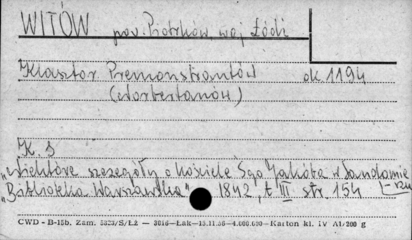 WITÓW pow. Piotrków woj Łódź
Klasztor Premonstrantów ok 1194
(Norbertanów)
K. S
"Niektóre szczegóły o kościele Ś-go Jakóba w Sandomie-
rzu
"Biblioteka Warszawska" 1842, t III str. 154
CWD - B-15b. Zam. Łak-13.11.56-4.000.000-Karton kl. IV A1/200 g